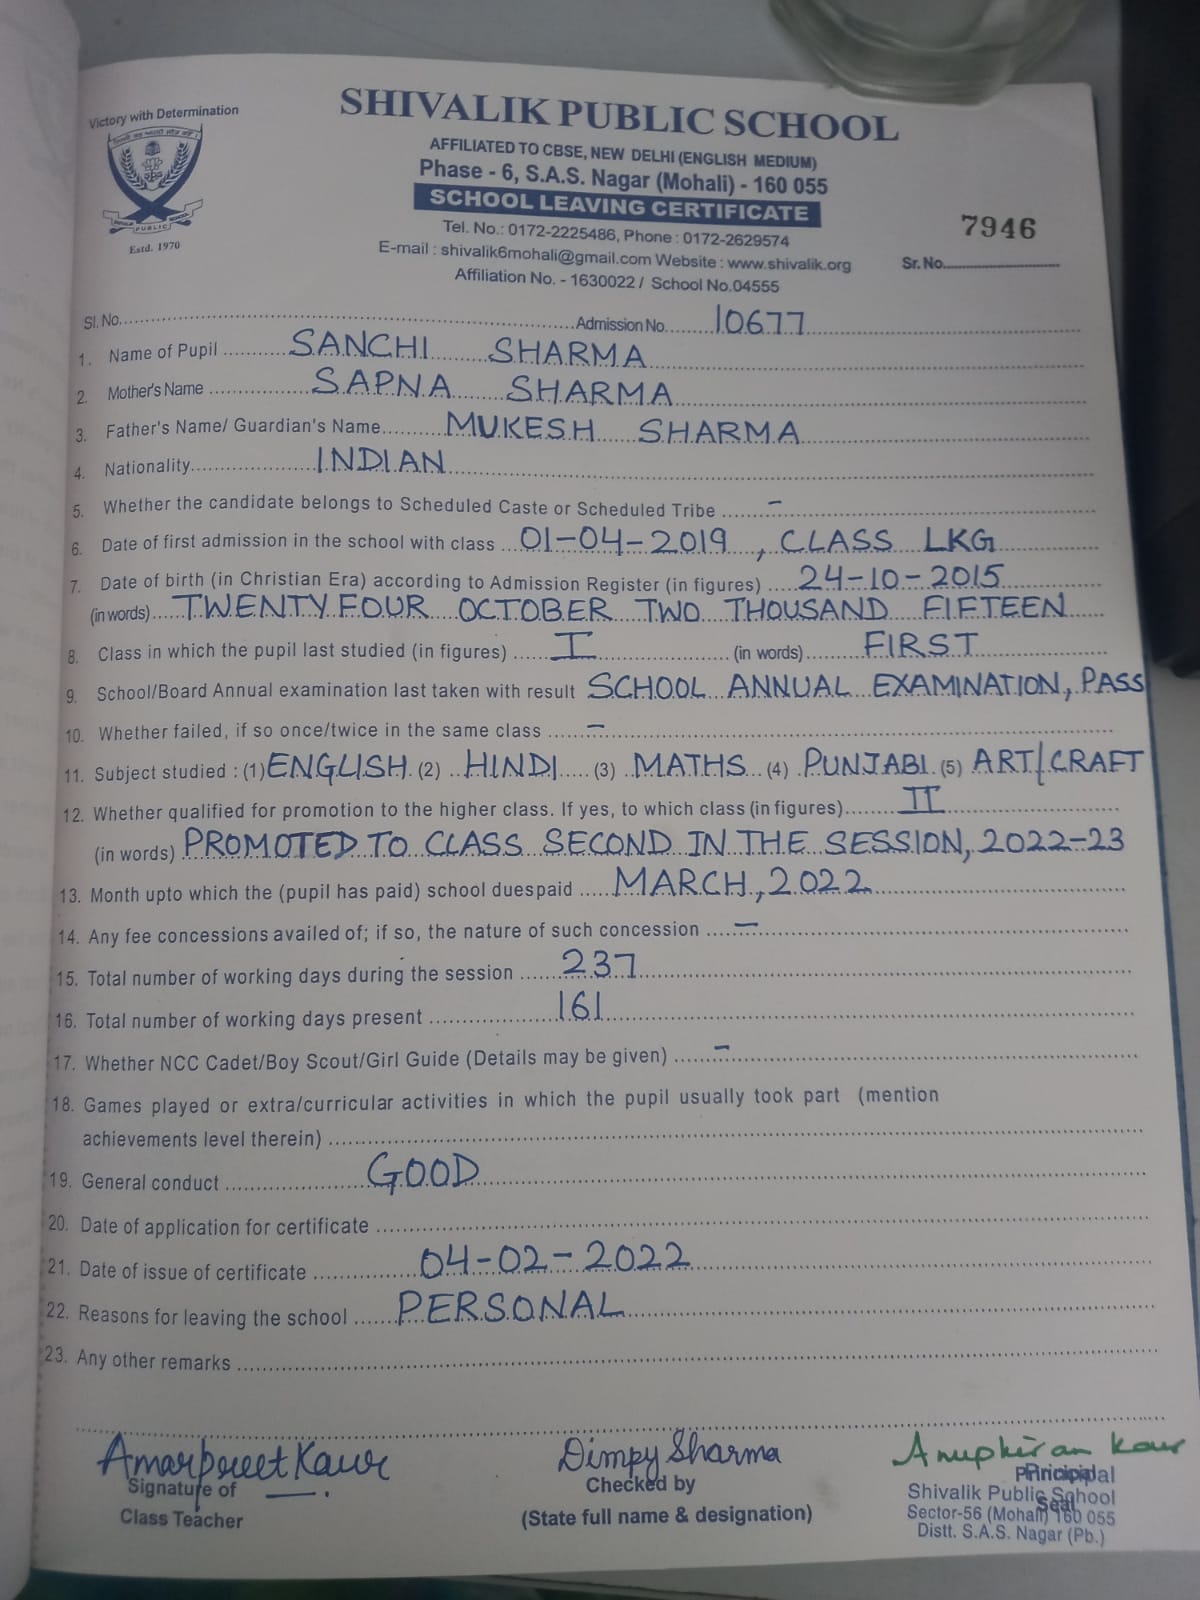 Victory with Determination
SHIVALIK PUBLIC SCHOOL
AFFILIATED TO CBSE, NEW DELHI (ENGLISH MEDIUM)
Phase - 6, S.A.S. Nagar (Mohali) - 160 055
SCHOOL LEAVING CERTIFICATE
Tel. No.: 0172-2225486, Phone : 0172-2629574
E-mail : shivalik6mohali@gmail.com Website : www.shivalik.org
Affiliation No. - 1630022 / School No.04555
SHIVALIK PUBLIC SCHOOL
Estd. 1970
7946
Sr. No.
Sl. No. Admission No. 10677
1. Name of Pupil SANCHI SHARMA
2. Mother's Name SAPNA SHARMA
3. Father's Name/ Guardian's Name MUKESH SHARMA
4. Nationality INDIAN
5. Whether the candidate belongs to Scheduled Caste or Scheduled Tribe -
6. Date of first admission in the school with class 01-04-2019, CLASS LKG
7. Date of birth (in Christian Era) according to Admission Register (in figures) 24-10-2015
(in words) TWENTY FOUR OCTOBER TWO THOUSAND FIFTEEN
8. Class in which the pupil last studied (in figures) I (in words) FIRST
9. School/Board Annual examination last taken with result SCHOOL ANNUAL EXAMINATION, PASS
10. Whether failed, if so once/twice in the same class -
11. Subject studied : (1) ENGLISH (2) HINDI (3) MATHS (4) PUNJABI (5) ART/CRAFT
12. Whether qualified for promotion to the higher class. If yes, to which class (in figures) II
(in words) PROMOTED TO CLASS SECOND IN THE SESSION, 2022-23
13. Month upto which the (pupil has paid) school duespaid MARCH, 2022
14. Any fee concessions availed of; if so, the nature of such concession -
15. Total number of working days during the session 237
16. Total number of working days present 161
17. Whether NCC Cadet/Boy Scout/Girl Guide (Details may be given) -
18. Games played or extra/curricular activities in which the pupil usually took part (mention
achievements level therein)
19. General conduct GOOD
20. Date of application for certificate
21. Date of issue of certificate 04-02-2022
22. Reasons for leaving the school PERSONAL
23. Any other remarks
Amarpreet Kaur
Signature of
Class Teacher
Dimpy Sharma
Checked by
(State full name & designation)
Anupkiran Kaur
Principal
Principal
Shivalik Public School
Seal
Sector-56 (Mohali) 160 055
Distt. S.A.S. Nagar (Pb.)